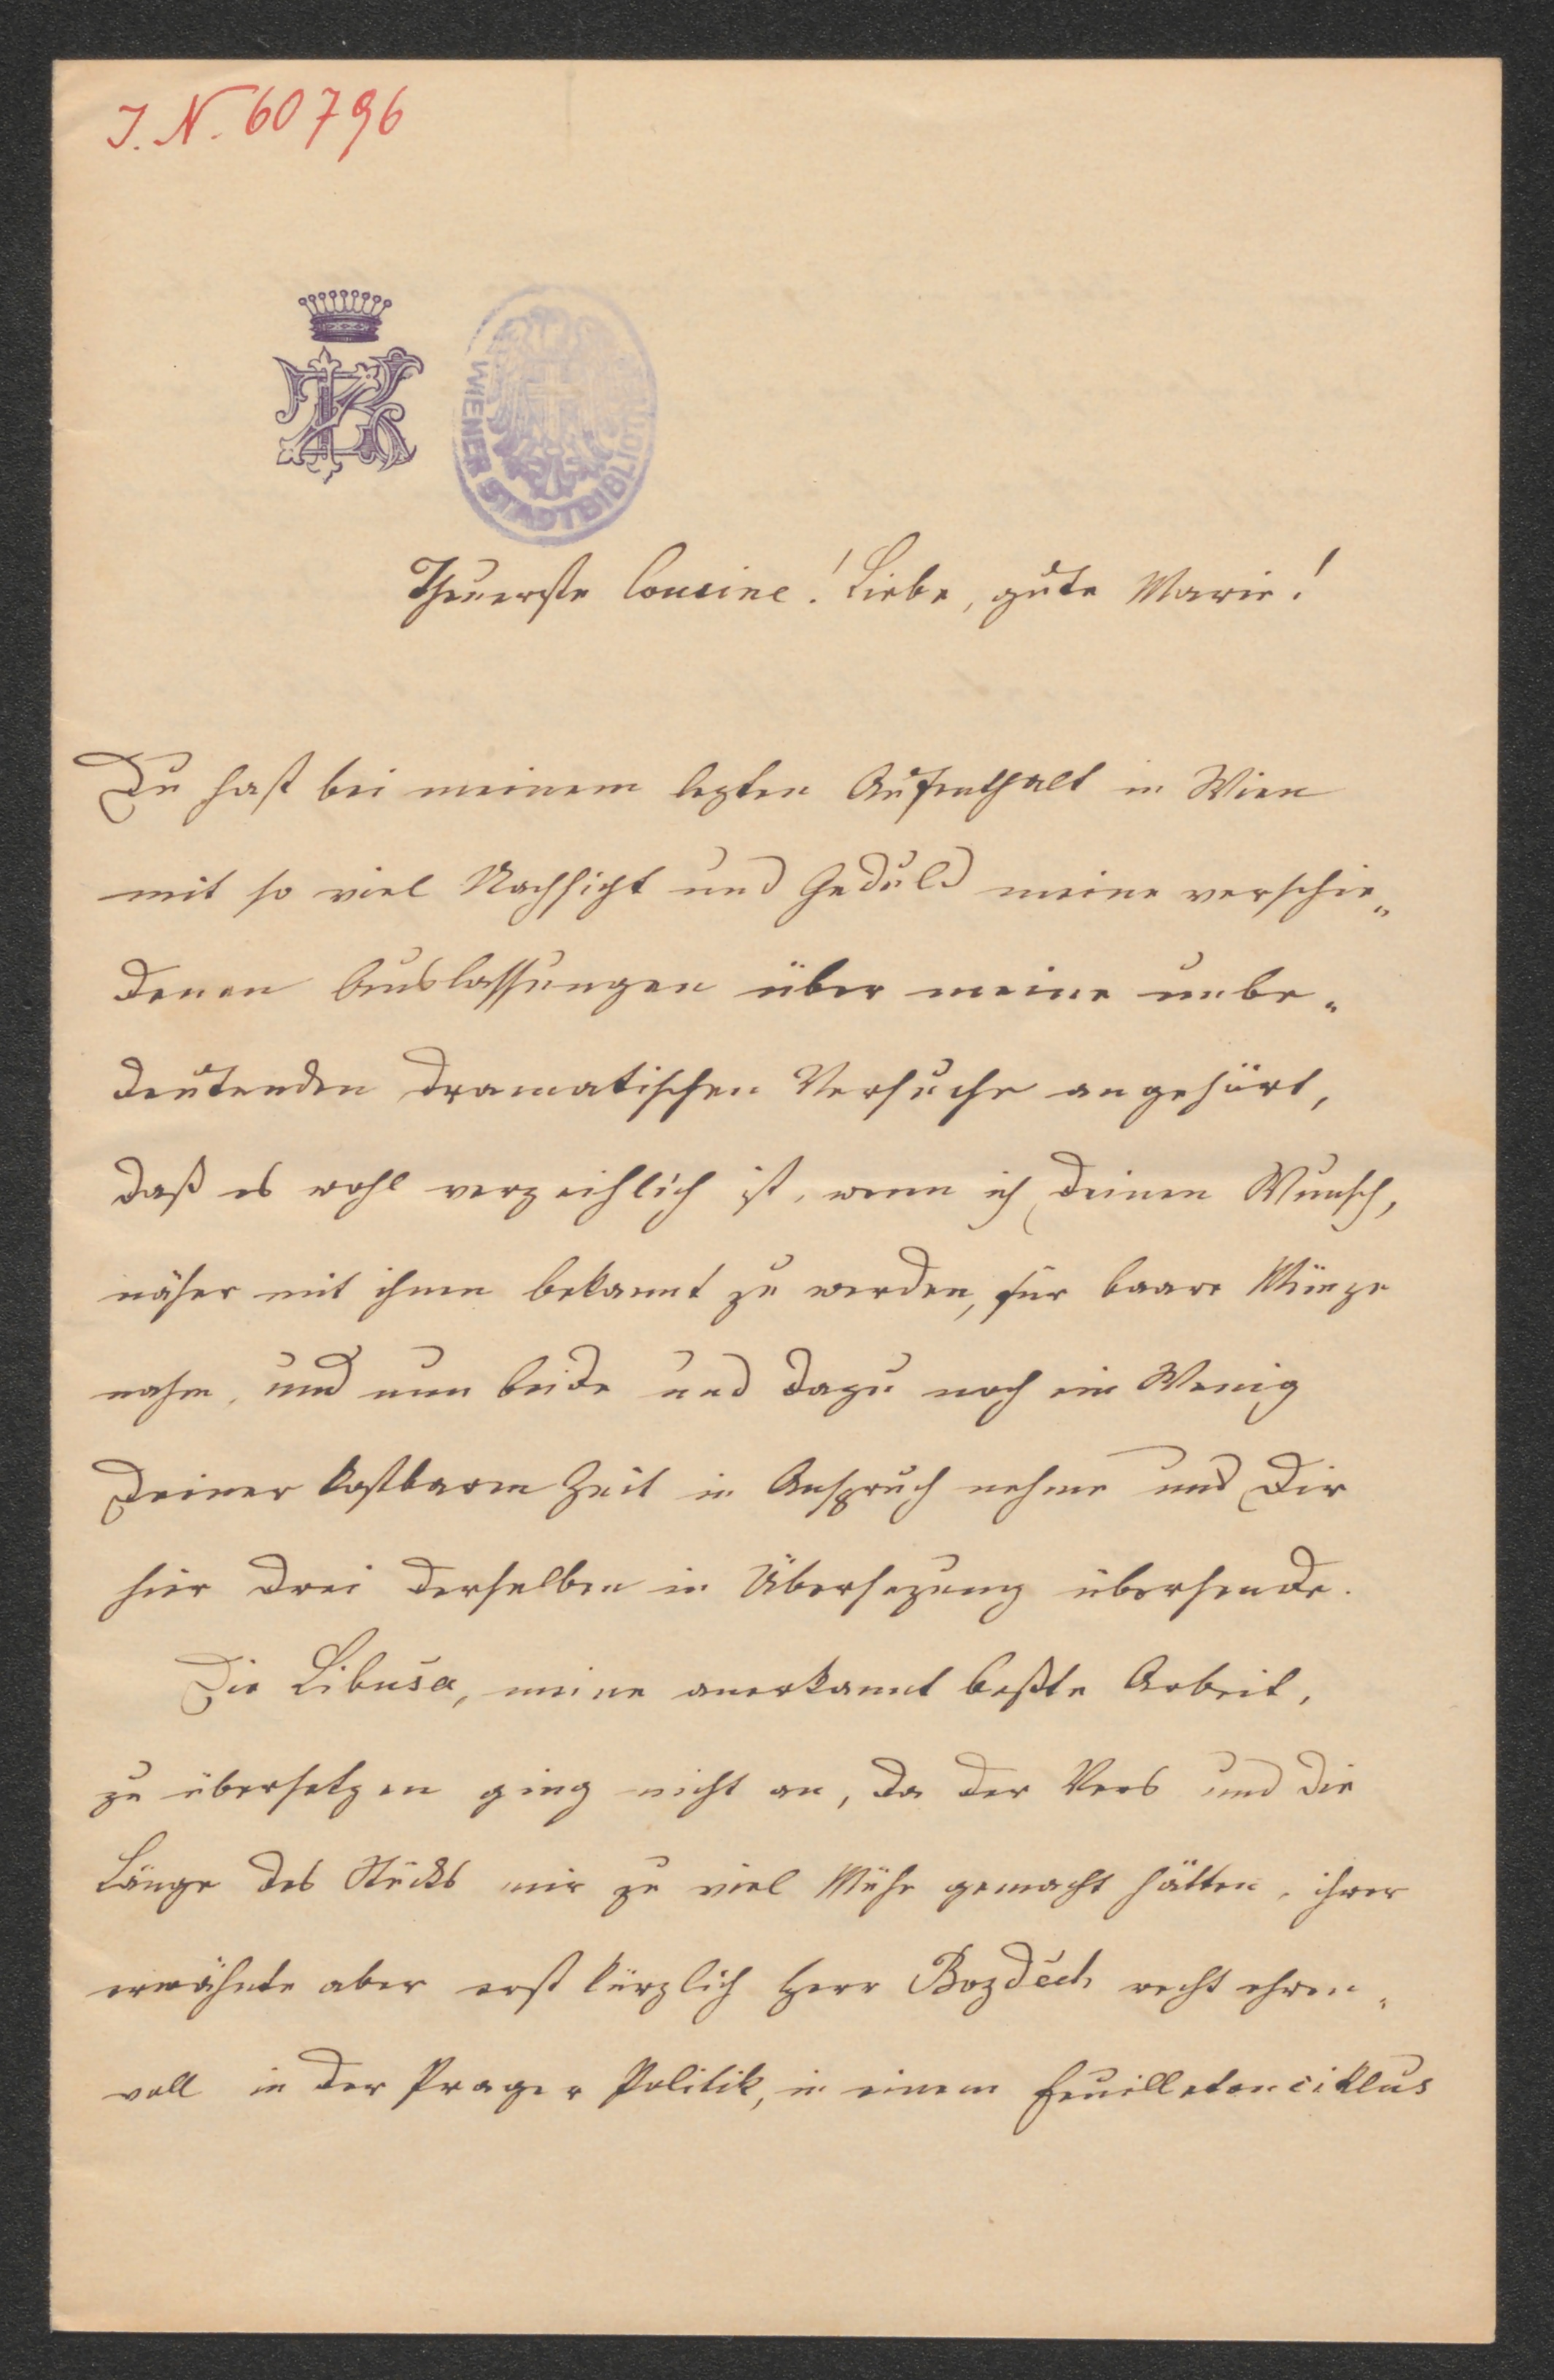 J. N. 60796
WIENER STADTBIBLIOTHEK
Theuerste Cousine! Liebe, gute Marie!
Du hast bei meinem lezten Aufenthalt in Wien
mit so viel Nachsicht und Geduld meine verschie„
denen Auslassungen über meine unbe„
deutenden dramatischen Versuche angehört,
daß es wohl verzeihlich ist, wenn ich Deinen Wunsch,
näher mit ihnen bekannt zu werden, für baare Münze
nahm, und nun beide und dazu noch ein Wenig
Deiner kostbaren Zeit in Anspruch nehme und Dir
hier drei derselben in Übersezung übersende.
Die Libuša, meine anerkannt beßte Arbeit,
zu übersetzen ging nicht an, da der Vers und die
Länge des Stücks mir zu viel Mühe gemacht hätten, ihrer
erwähnte aber erst kürzlich Herr Bozděch recht ehren„
voll in der Prager Politik, in einem Feuilletonciklus